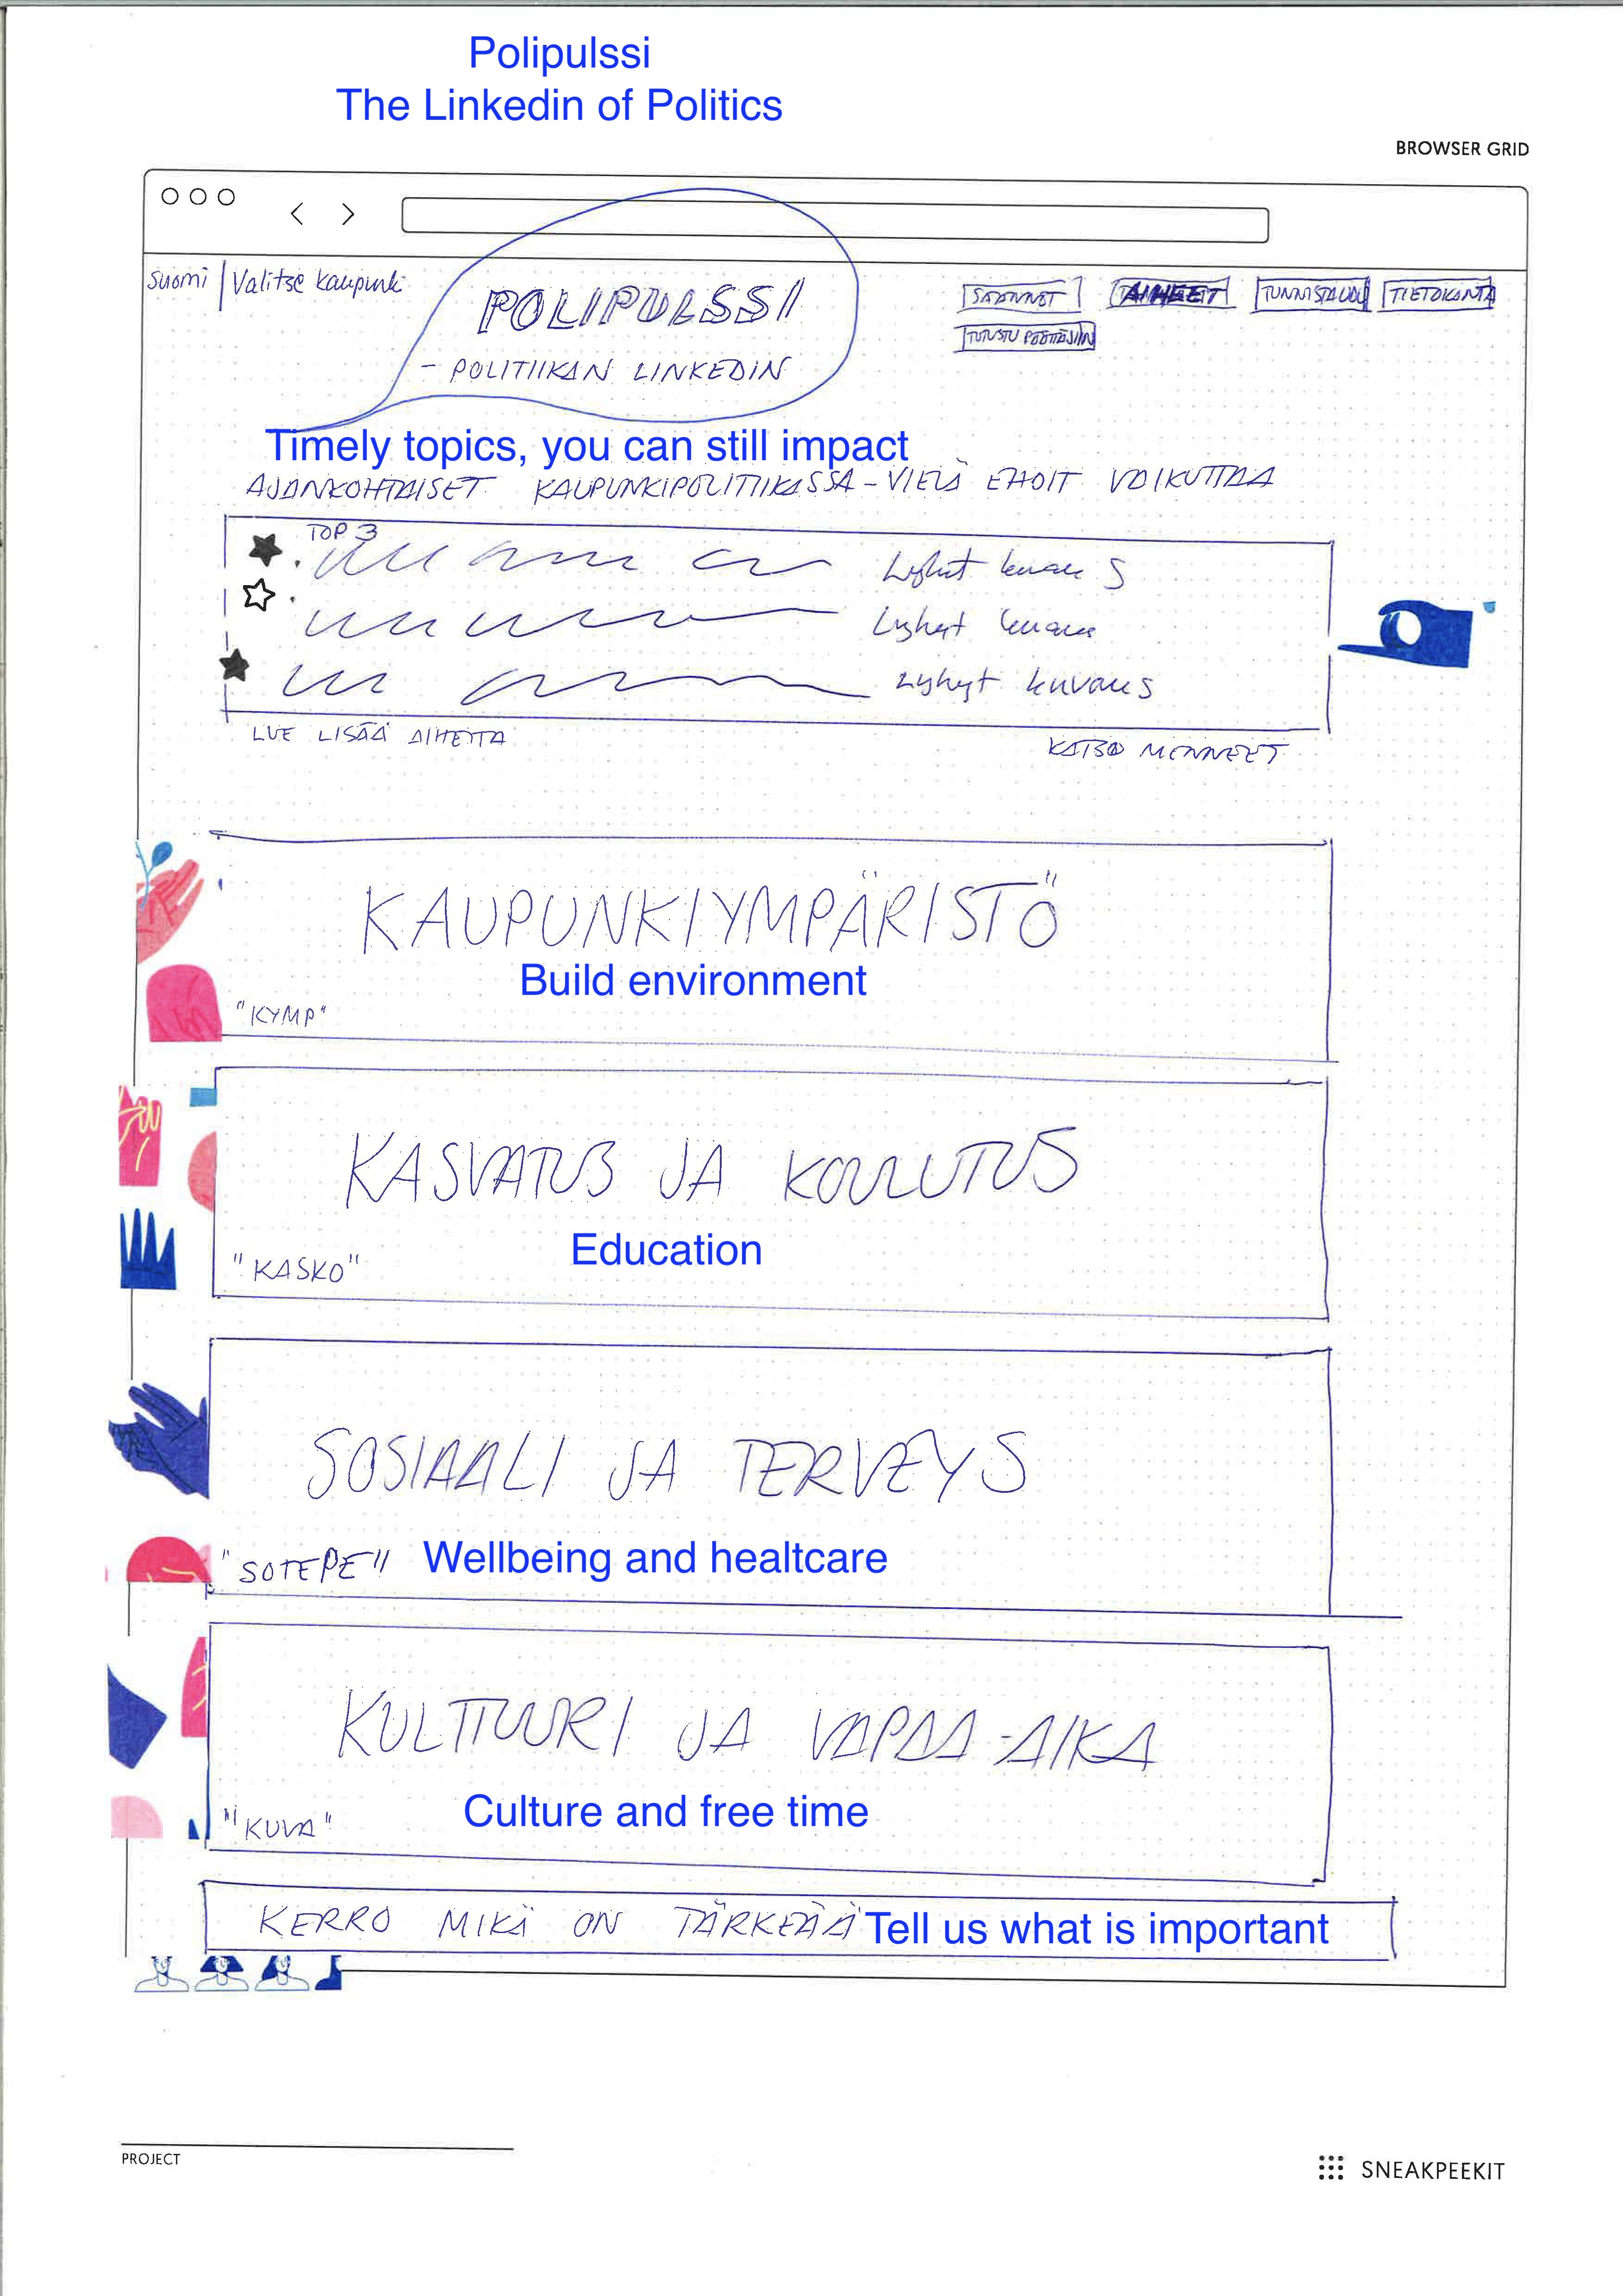 Polipulssi
The Linkedin of Politics
BROWSER GRID
Suomi | Valitse kaupunki
POLIPULSSI
- POLITIIKAN LINKEDIN
SÄÄNNÖT AIHEET TUNNISTAUDU TIETOKANTA
TUTUSTU PÄÄTTÄJIIN
Timely topics, you can still impact
AJANKOHTAISET KAUPUNKIPOLITIIKASSA - VIELÄ EHDIT VAIKUTTAA
TOP 3
Lyhyt kuvaus
Lyhyt kuvaus
Lyhyt kuvaus
LUE LISÄÄ AIHEITA
KATSO MENNEET
KAUPUNKIYMPÄRISTÖ
Build environment
"KYMP"
KASVATUS JA KOULUTUS
Education
"KASKO"
SOSIAALI JA TERVEYS
"SOTEPE" Wellbeing and healtcare
KULTTUURI JA VAPAA-AIKA
Culture and free time
"KUVA"
KERRO MIKÄ ON TÄRKEÄÄ Tell us what is important
PROJECT
SNEAKPEEKIT